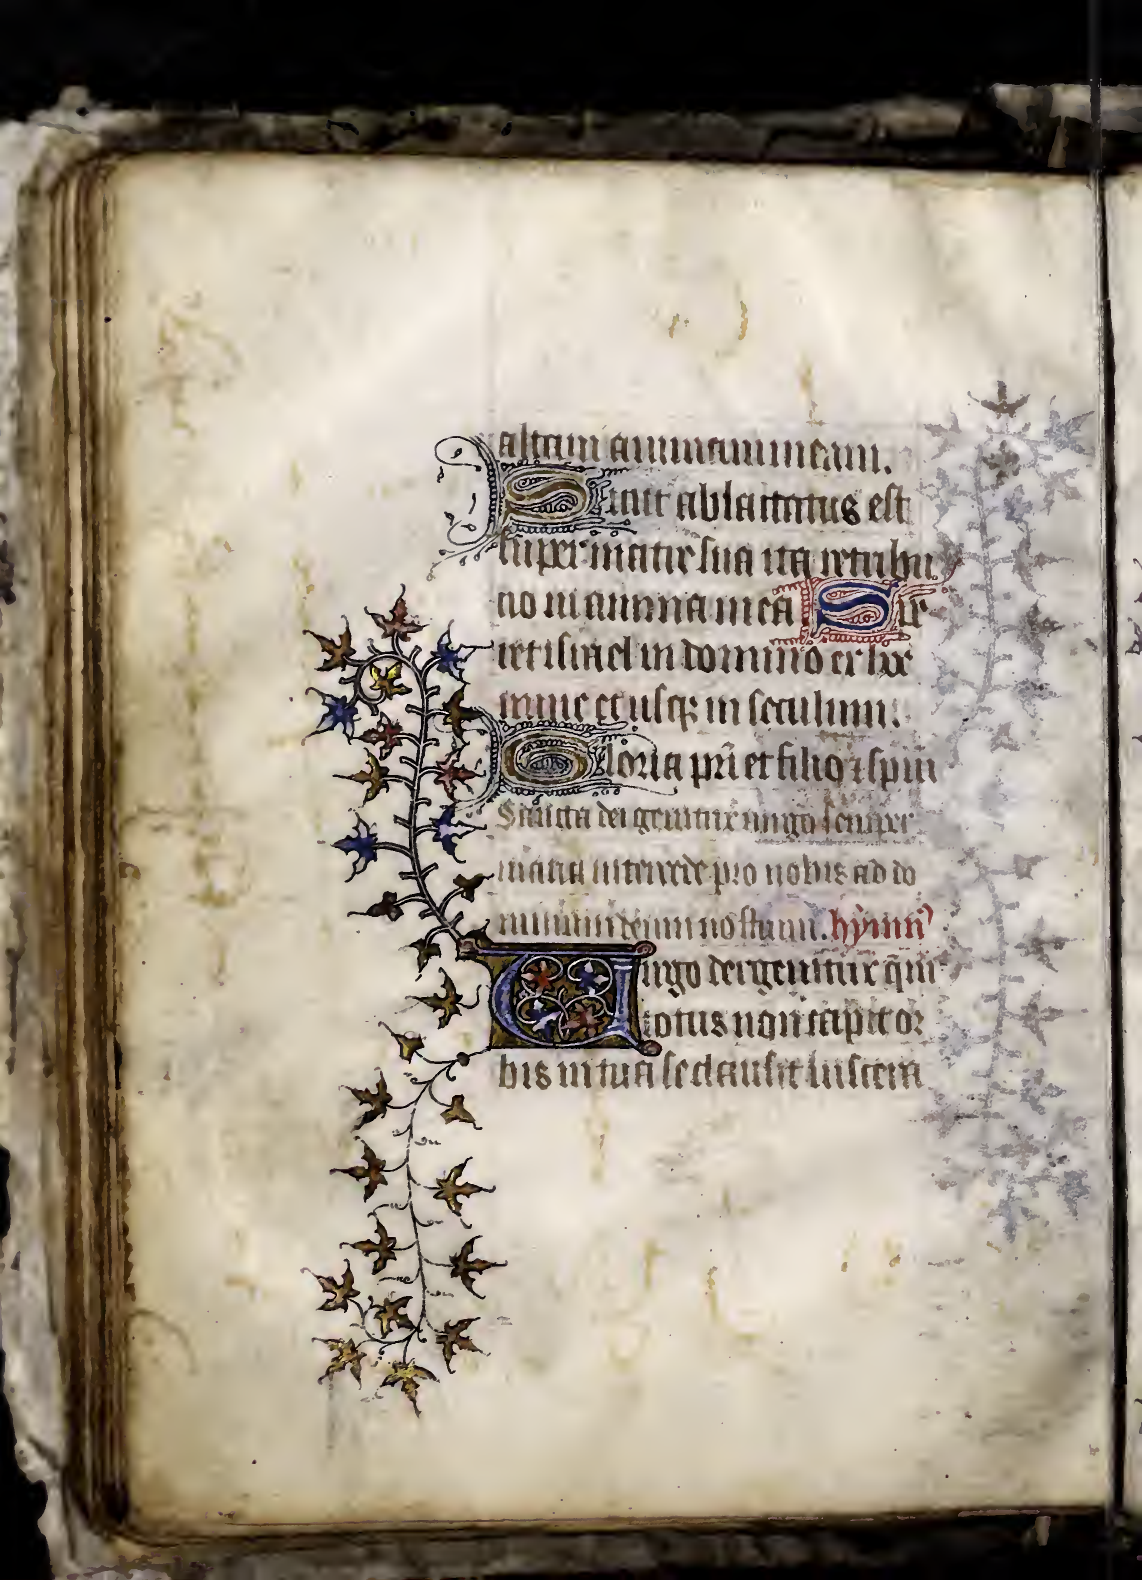 altaui animam meam.
Sicut ablactatus est
super matre sua ita retribu
cio in anima mea Spe
ret israel in domino ex hoc
nunc et usq; in seculum.
Gloria pri et filio ⁊ spiri
Sancta dei genitrix uirgo semper
maria intercede pro nobis ad do
minum deum nostrum. hymn
Uirgo dei genitrix q̄m
totus non capit or
bis in tua se clausit uiscera